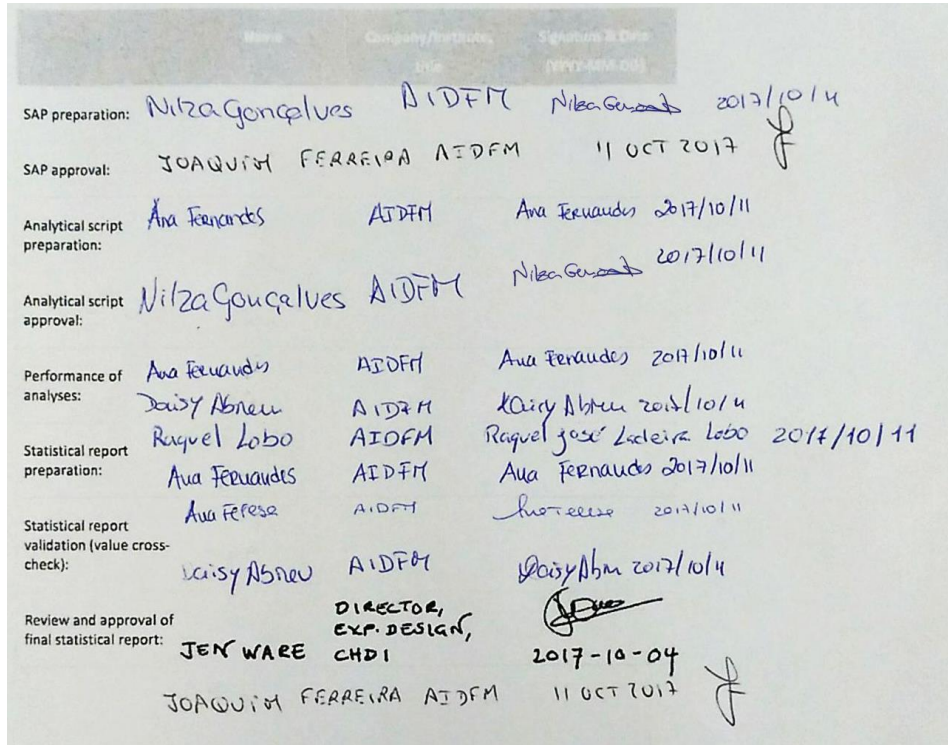 Name Company/Institute, Signature & Date
title (YYYY-MM-DD)
SAP preparation: Nilza Gonçalves AIDFM 2017/10/11
SAP approval: JOAQUIM FERREIRA AIDFM 11 OCT 2017
Analytical script preparation: Ana Fernandes AIDFM Ana Fernandes 2017/10/11
Analytical script approval: Nilza Gonçalves AIDFM 2017/10/11
Performance of analyses: Ana Fernandes AIDFM Ana Fernandes 2017/10/11
Daisy Abreu AIDFM Daisy Abreu 2017/10/11
Statistical report preparation: Raquel Lobo AIDFM Raquel José Ladeira Lobo 2017/10/11
Ana Fernandes AIDFM Ana Fernandes 2017/10/11
Statistical report validation (value cross-check): Ana Teresa AIDFM 2017/10/11
Daisy Abreu AIDFM Daisy Abreu 2017/10/11
Review and approval of final statistical report: JEN WARE DIRECTOR, EXP. DESIGN, CHDI 2017-10-04
JOAQUIM FERREIRA AIDFM 11 OCT 2017